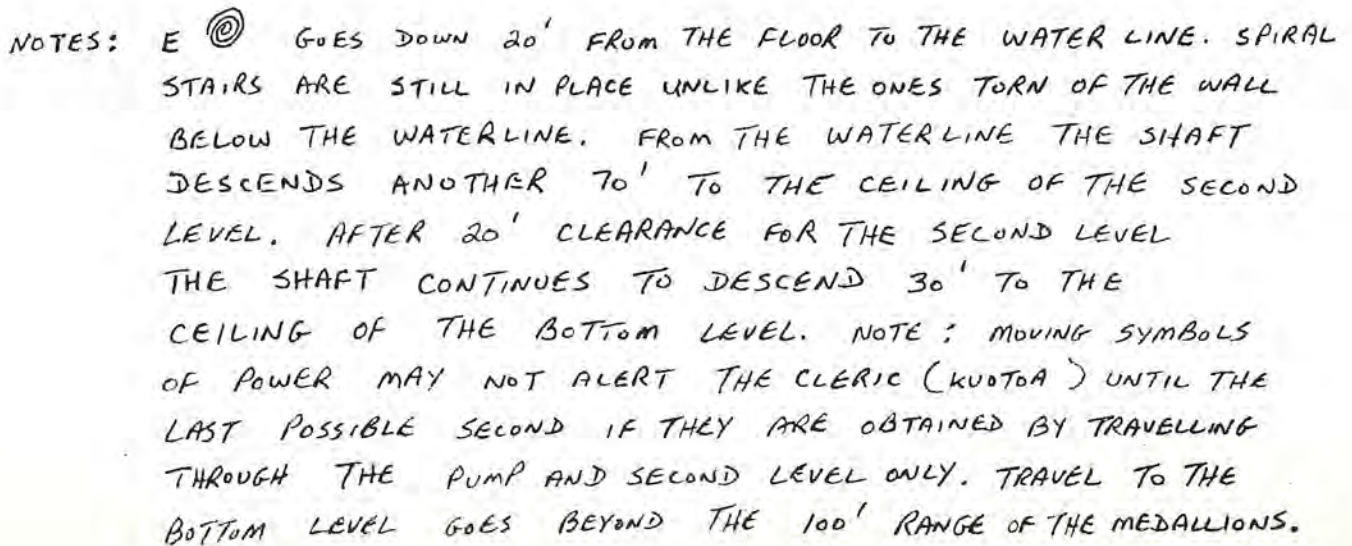 NOTES: E GOES DOWN 20' FROM THE FLOOR TO THE WATER LINE. SPIRAL
STAIRS ARE STILL IN PLACE UNLIKE THE ONES TORN OF THE WALL
BELOW THE WATERLINE. FROM THE WATERLINE THE SHAFT
DESCENDS ANOTHER 70' TO THE CEILING OF THE SECOND
LEVEL. AFTER 20' CLEARANCE FOR THE SECOND LEVEL
THE SHAFT CONTINUES TO DESCEND 30' TO THE
CEILING OF THE BOTTOM LEVEL. NOTE: MOVING SYMBOLS
OF POWER MAY NOT ALERT THE CLERIC (KUOTOA) UNTIL THE
LAST POSSIBLE SECOND IF THEY ARE OBTAINED BY TRAVELLING
THROUGH THE PUMP AND SECOND LEVEL ONLY. TRAVEL TO THE
BOTTOM LEVEL GOES BEYOND THE 100' RANGE OF THE MEDALLIONS.